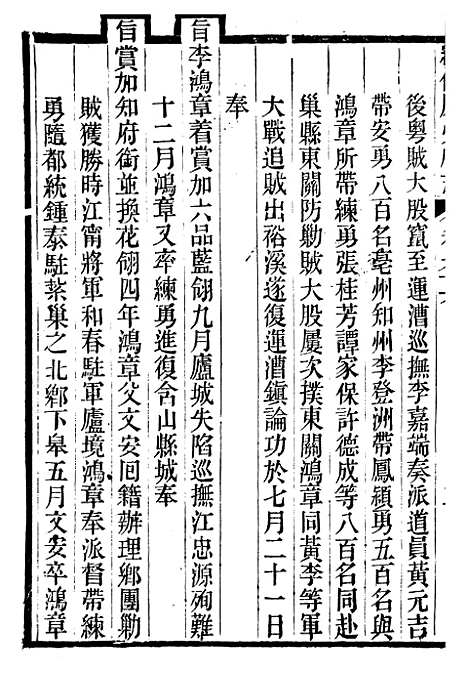 後粵賊大股竄至運漕巡撫李嘉端奏派道員黃元吉
帶安勇八百名亳州知州李登洲帶鳳潁勇五百名與
鴻章所帶練勇張桂芳譚家保許德成等八百名同赴
巢縣東關防勦賊大股屢次撲東關鴻章同黃李等軍
大戰追賊出裕溪遂復運漕鎮論功於七月二十一日
奉
旨李鴻章着賞加六品藍翎九月廬城失陷巡撫江忠源殉難
十二月鴻章又率練勇進復含山縣城奉
旨賞加知府銜並換花翎四年鴻章父文安回籍辦理鄉團勦
賊獲勝時江甯將軍和春駐軍廬境鴻章奉派督帶練
勇隨都統鍾泰駐紮巢之北鄉下皋五月文安卒鴻章